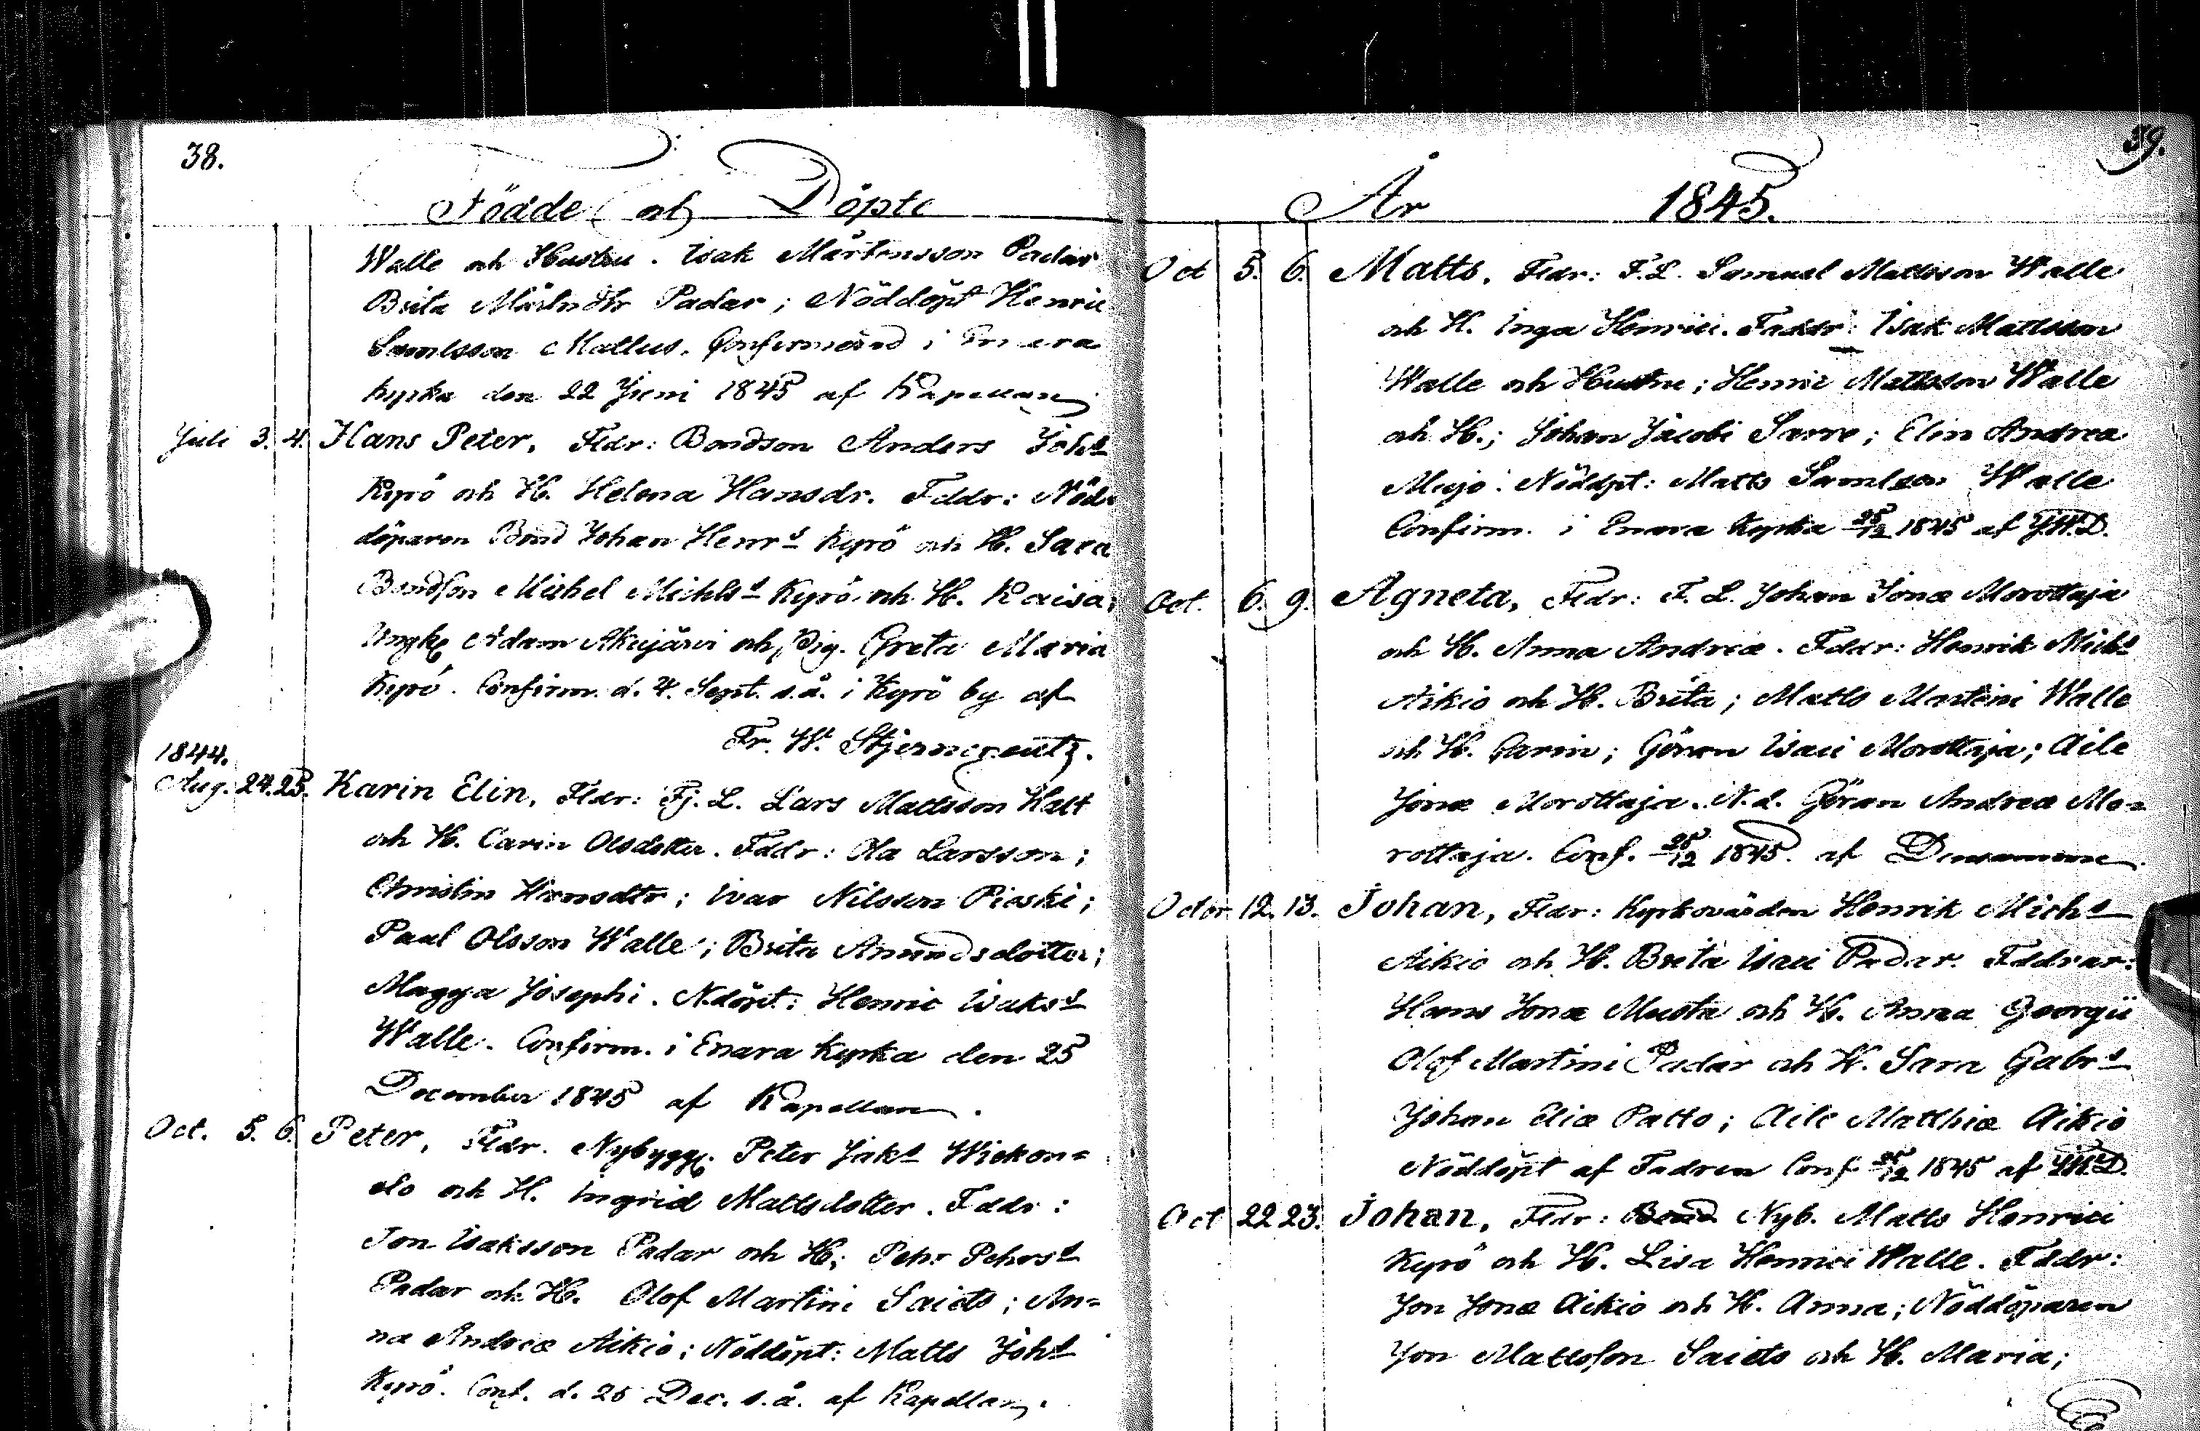 38.
Födde och Döpte
Walle och Hustru. Isak Mårtensson Padar
Brita Mårtnsdtr Padar; Nöddöpt Henric
Samlsson Mattus. Confirmerad i Enara
kyrka den 22 Juni 1845 af Kapellan
Juli 3. 4. Hans Peter, Fldr: Bondson Anders Johs
Kyrö och H. Helena Hansdr. Fddr: Nöd-
döparen Bond Johan Henrs Kyrö och H. Sara
Bondson Michel Michls Kyrö och H. Kaisa;
Ungk Adam Akujärvi och Pig. Greta Maria
Kyrö. Confirm. d. 4. Sept. s.å. i Kyrö by af
Fr. W. Stjerncreutz.
1844.
Aug. 24. 25. Karin Elin, Fldr: Fj. L. Lars Mattsson Halt
och H. Carin Olsdotter. Fddr: Ola Larsson;
Christin Hansdtr; Ivar Nilsson Pieski;
Paul Olsson Walle; Brita Amundsdotter;
Magga Josephi. N.döpt: Henric Isaks
Walle. Confirm. i Enara Kyrka den 25
December 1845 af Kapellan.
Oct. 5. 6. Peter, Fldr. Nybygg. Peter Jaks Wiekon=
elo och H. Ingrid Mattsdotter. Fddr:
Jon Isaksson Padar och H; Pehr Pehrss
Padar och H. Olof Martini Saiets; An=
na Andreæ Aikio; Nöddöpt: Matts Johs
Kyrö. Conf. d. 25 Dec. s.å. af Kapellan.
39.
År 1845.
Oct 5. 6. Matts, Fldr: F.L. Samuel Mattsson Walle
och H. Inga Henrici. Faddr: Isak Mattsson
Walle och Hustru; Henric Mattsson Walle
och H.; Johan Jacobi Sarre; Elin Andreæ
Musjo. Nöddpt: Matts Samlson Walle
Confirm. i Enara Kyrka 25/12 1845 af J.W.D.
Oct. 6. 9. Agneta, Fldr: F. L. Johan Jonæ Morottaja
och H. Anna Andreæ. Fddr: Henrik Michs
Aikio och H. Brita; Matts Martini Walle
och H. Carin; Göran Isaci Morottaja; Aile
Jonæ Morottaja. N.d. Göran Andreæ Mo=
rottaja. Conf. 25/12 1845. af Densamme.
Octbr. 12. 13. Johan, Fldr: Kyrkovärden Henrik Michs
Aikio och H. Brita Isaci Padar. Fddrar:
Hans Jonæ Musta och H. Anna Georgii
Olof Martini Padar och H. Sara Gabrs
Johan Eliæ Patto; Aile Matthiæ Aikio
Nöddöpt af Fadren Conf 25/12 1845 af J.W.D.
Oct 22 23. Johan, Fldr: Bond Nyb. Matts Henrici
Kyrö och H. Lisa Henrici Walle. Fddr:
Jon Jonæ Aikio och H. Anna; Nöddöparen
Jon Mattsson Saiets och H. Maria;